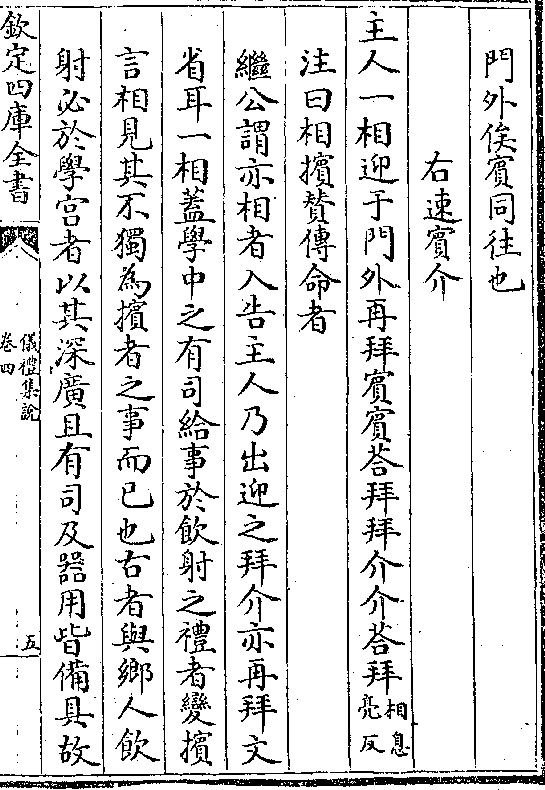 門外俟賓同往也
右速賓介
主人一相迎于門外再拜賓賓荅拜拜介介荅拜相息亮反
注曰相擯贊傳命者
繼公謂亦相者入告主人乃出迎之拜介亦再拜文
省耳一相蓋學中之有司給事於飲射之禮者變擯
言相見其不獨為擯者之事而已也古者與鄉人飲
射必於學宫者以其深廣且有司及器用皆備具故
欽定四庫全書
儀禮集說
卷四
五